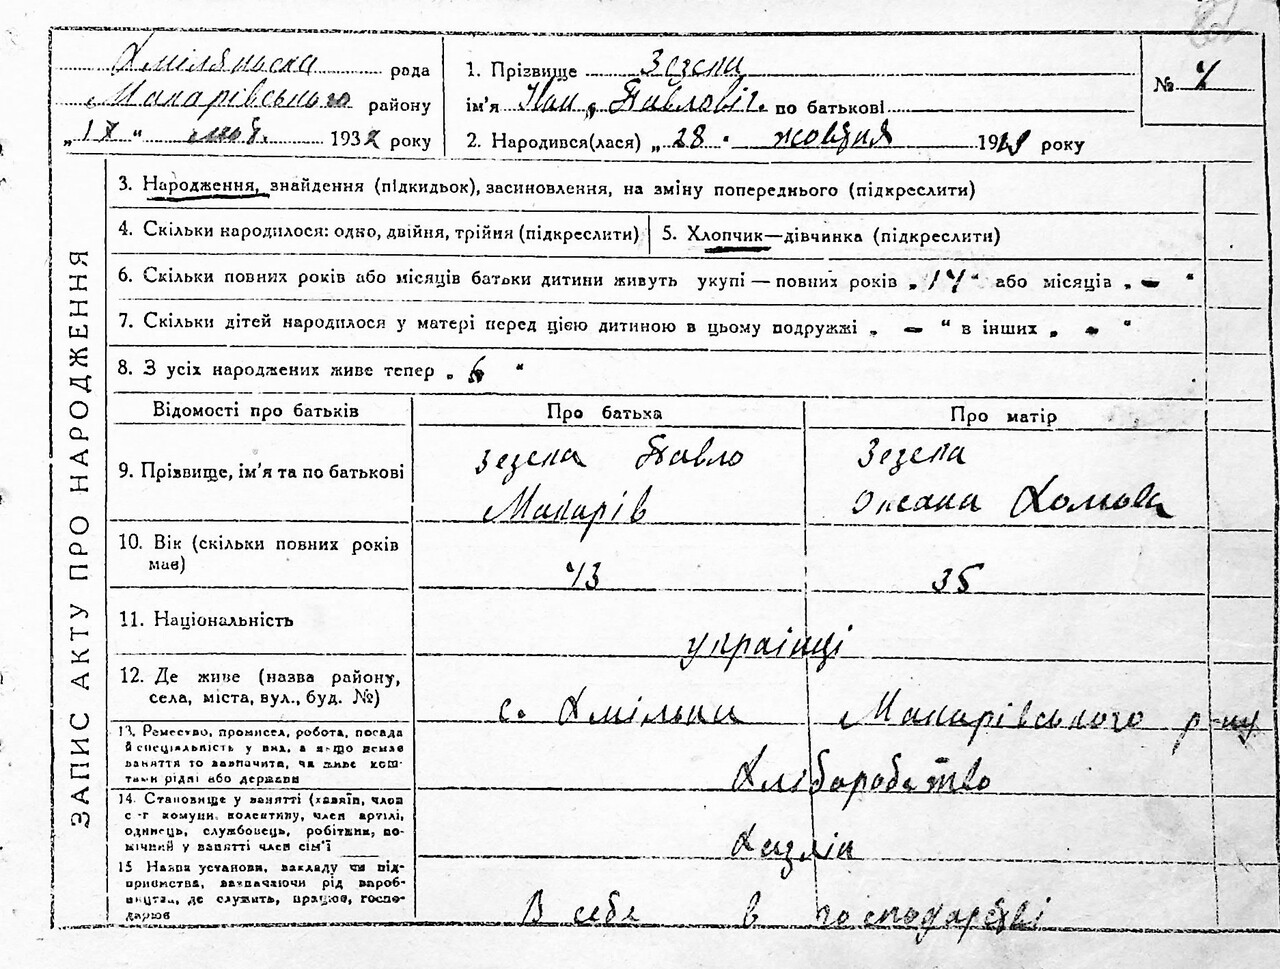 Хмілянська рада
Макарівського району
„17“ лют. 1932 року
1. Прізвище Зезеки
ім'я Іван, Павлович. по батькові
2. Народився(лася) „28“ жовтня 19 року
№ 7
ЗАПИС АКТУ ПРО НАРОДЖЕННЯ
3. Народження, знайдення (підкидьок), засиновлення, на зміну попереднього (підкреслити)
4. Скільки народилося: одно, двійня, трійня (підкреслити)
5. Хлопчик—дівчинка (підкреслити)
6. Скільки повних років або місяців батьки дитини живуть укупі — повних років „14“ або місяців „—“
7. Скільки дітей народилося у матері перед цією дитиною в цьому подружжі „—“ в інших „—“
8. З усіх народжених живе тепер „6“
Відомості про батьків
Про батька
Про матір
9. Прізвище, ім'я та по батькові
Зезека Павло
Макарів
Зезека
Оксана Хомова
10. Вік (скільки повних років
мав)
43
35
11. Національність
українці
12. Де живе (назва району,
села, міста, вул., буд. №)
с. Хмільна Макарівського р-ну
13. Ремество, промисел, робота, посада
й спеціальність у них, а якщо немає
заняття то зазначити, чи живе кош-
тами рідні або держави
Хліборобство
14. Становище у занятті (хазяїн, член
с-г комуни, колективу, член артілі,
одинець, службовець, робітник, по-
мічний у занятті член сім'ї
Хазяїн
15 Назва установи, закладу чи під-
приємства, зазначаючи рід вироб-
ництва, де служить, працює, госпо-
дарює
В себе в господарстві